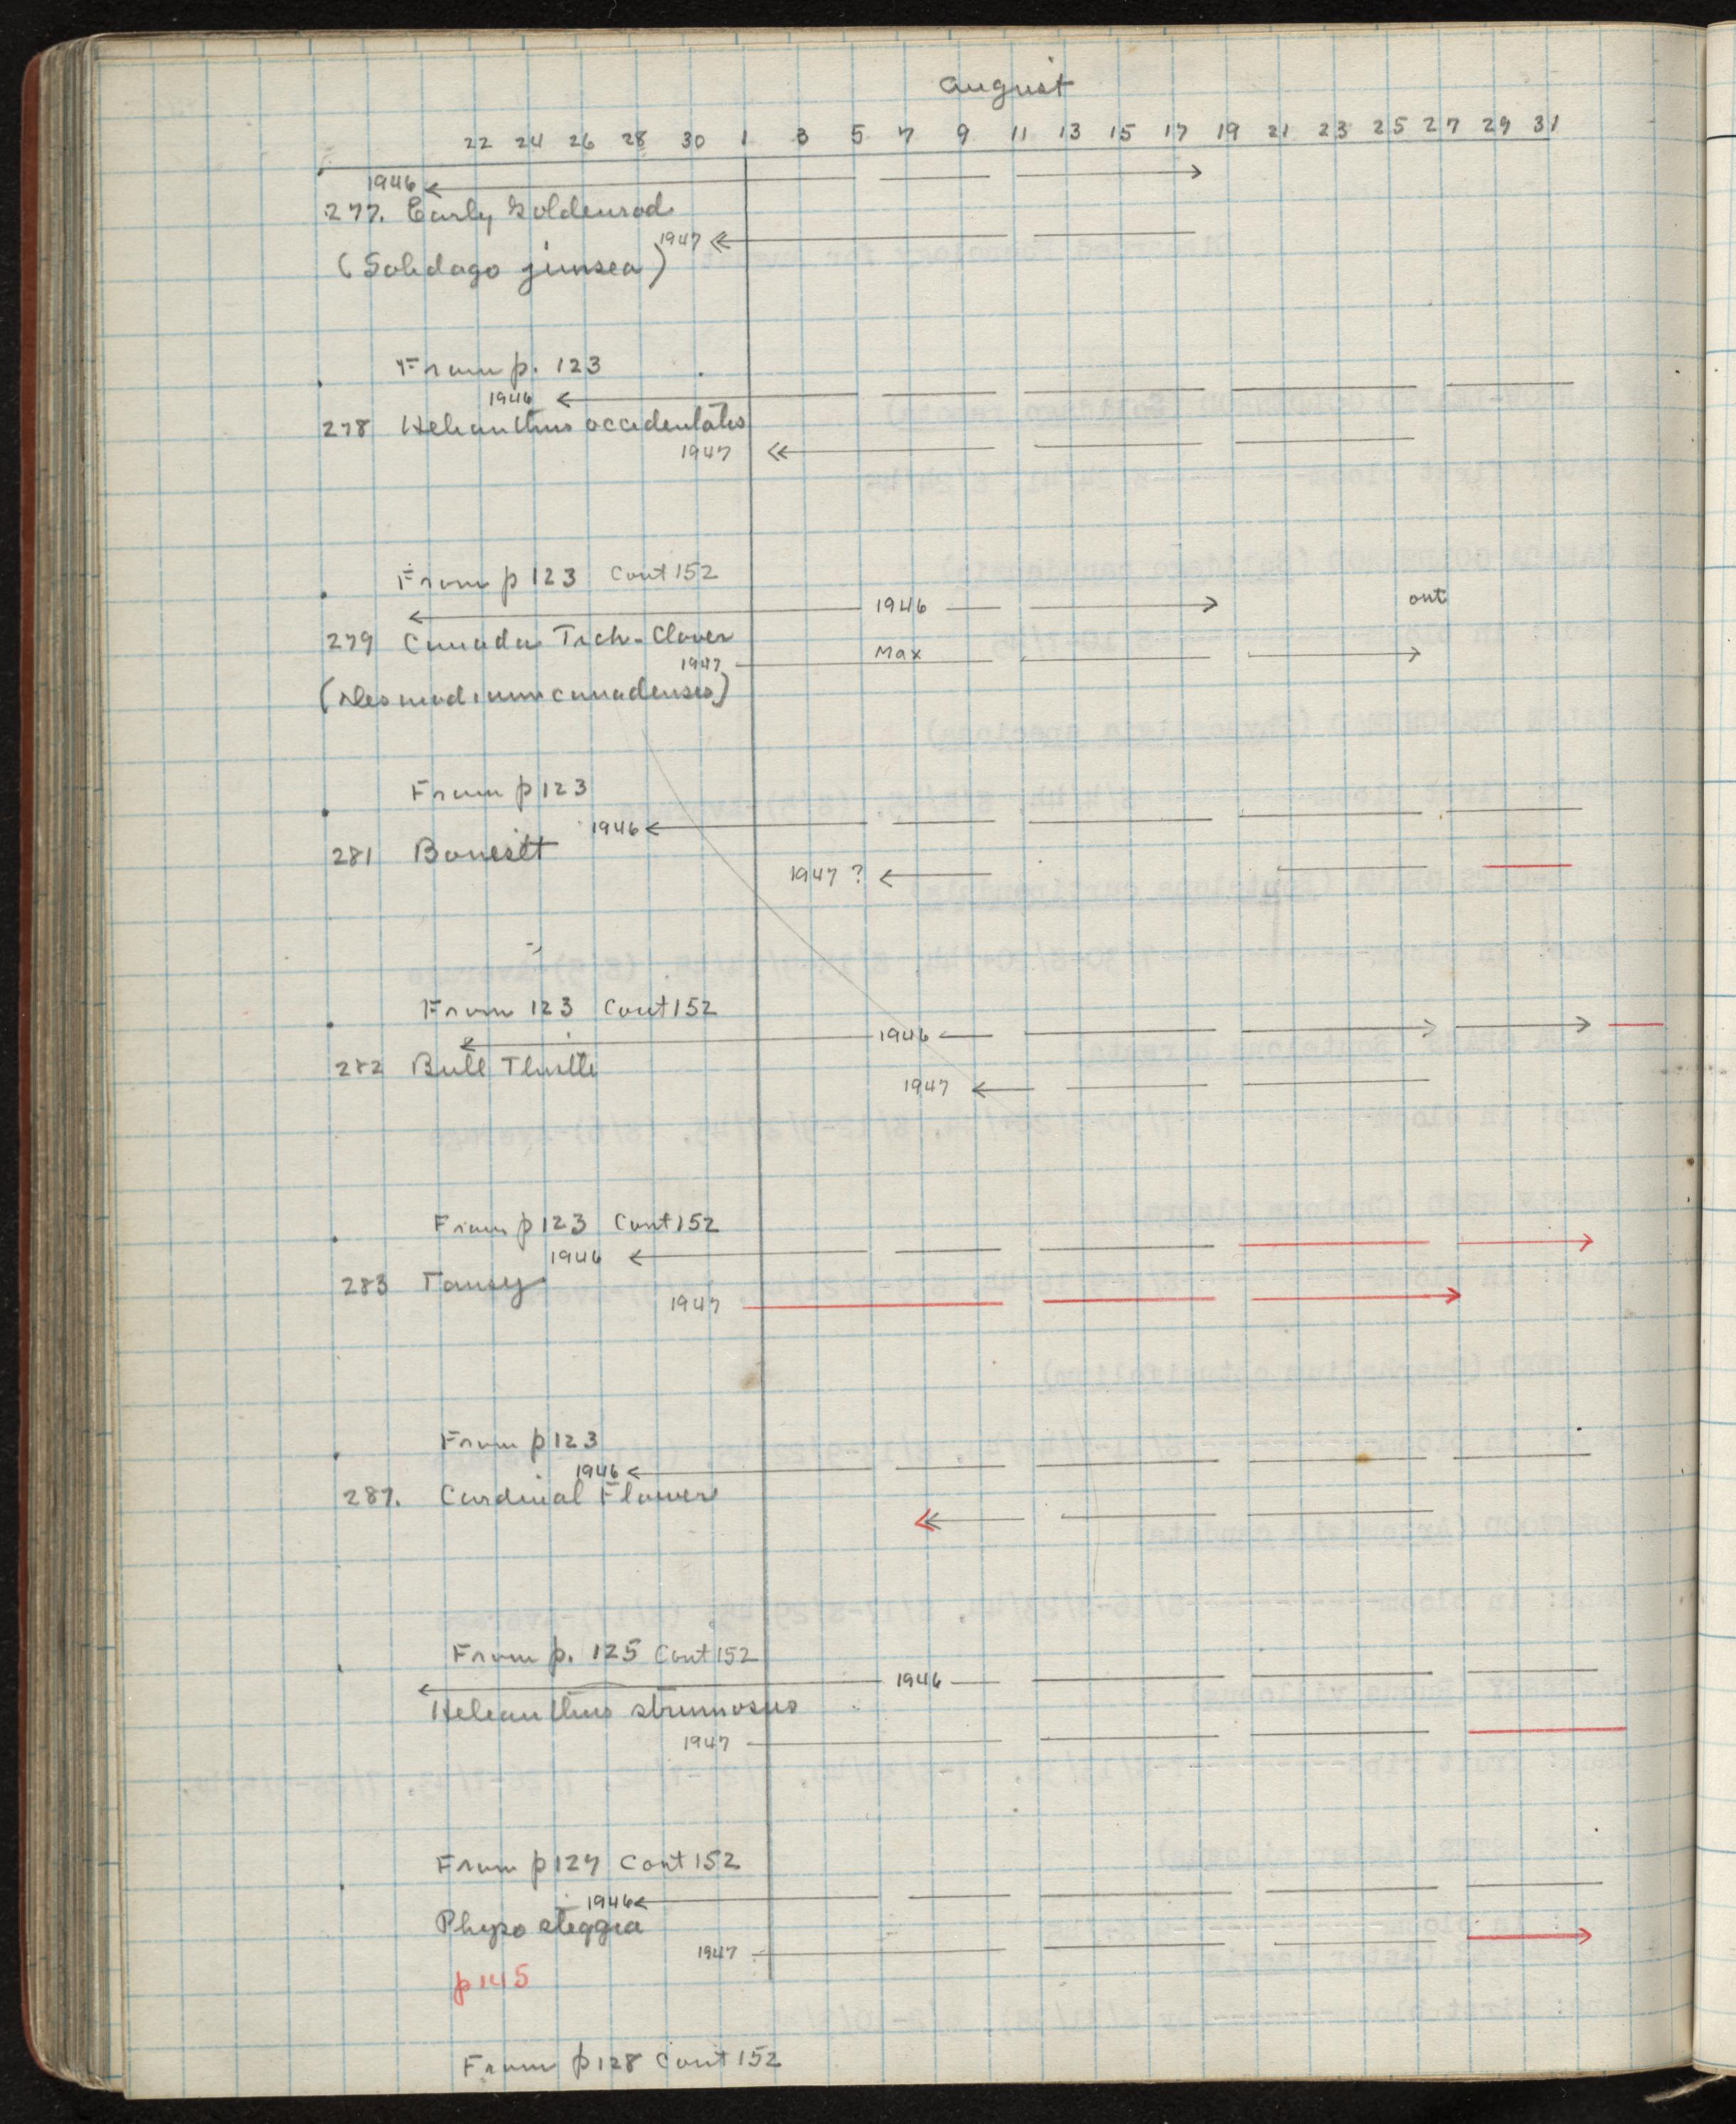 August
22 24 26 28 30 1 3 5 7 9 11 13 15 17 19 21 23 25 27 29 31
1946
277. Early Goldenrod
1947
(Solidago juncea)
From p. 123
1946
278 Helianthus occidentalis
1947
From p 123 Cont 152
1946 out
279 Canada Tick-Clover
1947 Max
(Desmodium canadense)
From p 123
1946
281 Boneset
1947 ?
From 123 Cont 152
1946
282 Bull Thistle
1947
From p 123 Cont 152
1946
283 Tansy
1947
From p 123
1946
287. Cardinal Flower
From p. 125 Cont 152
1946
Helianthus strumosus
1947
From p 127 Cont 152
1946
Physosteggia
1947
p 145
From p 128 Cont 152